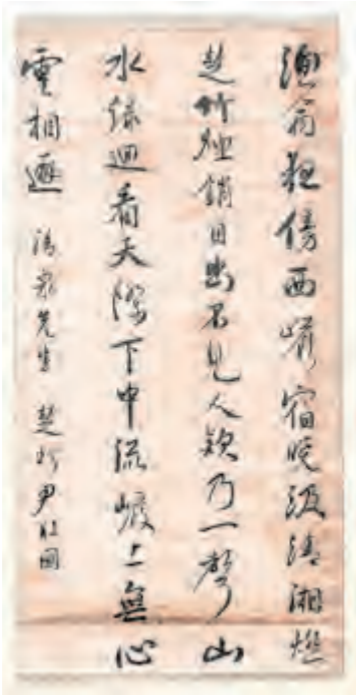 漁翁夜傍西巖宿曉汲清湘燃
楚竹煙銷日出不見人欸乃一聲山
水綠迴看天際下中流巖上無心
雲相逐 先生 楚珍尹壯圖